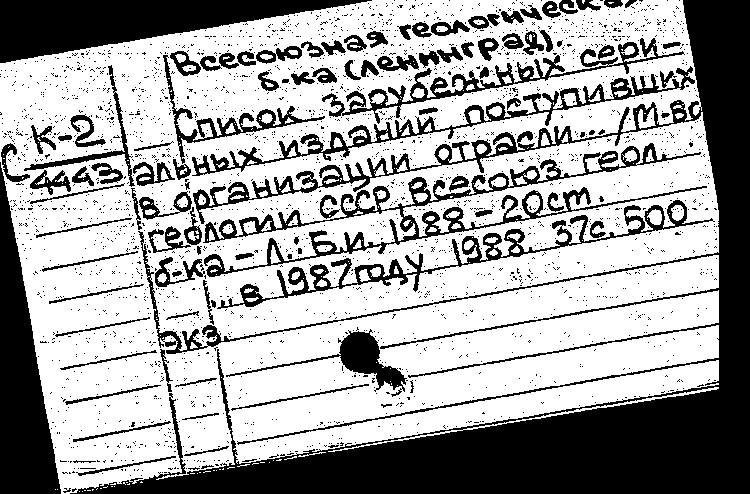 Всесоюзная геологическая
б-ка (Ленинград).
Список зарубежных сери-
альных изданий, поступивших
в организации отрасли... / М-во
геологии СССР, Всесоюз. геол.
б-ка. - Л.: Б.и., 1988. - 20 ст.
... в 1987 году. 1988. 37с. 500
экз.
С К-2
4443